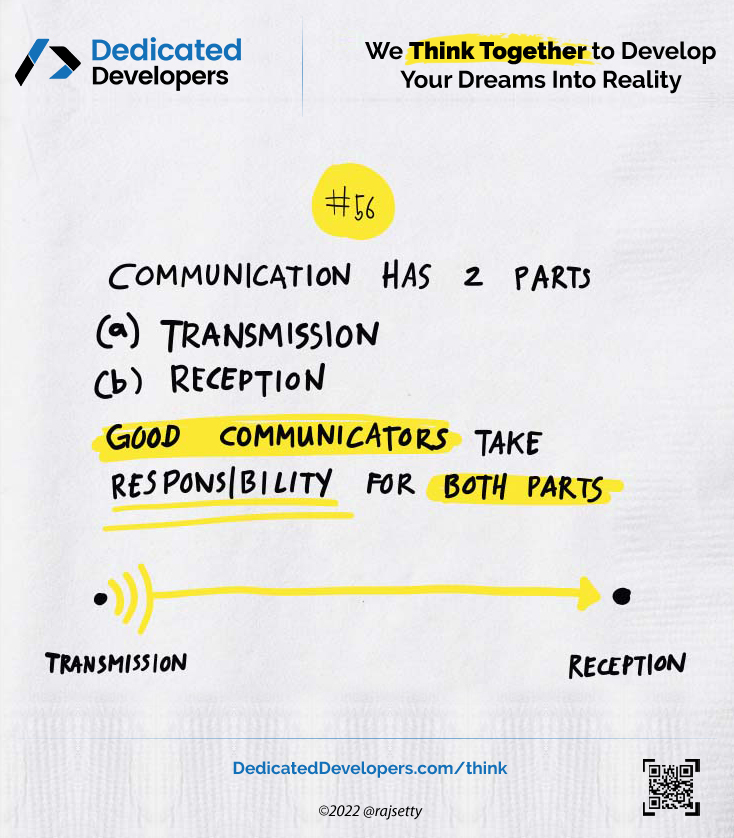 Dedicated
Developers
We Think Together to Develop
Your Dreams Into Reality
#56
COMMUNICATION HAS 2 PARTS
(a) TRANSMISSION
(b) RECEPTION
GOOD COMMUNICATORS TAKE
RESPONSIBILITY FOR BOTH PARTS
TRANSMISSION
RECEPTION
DedicatedDevelopers.com/think
©2022 @rajsetty